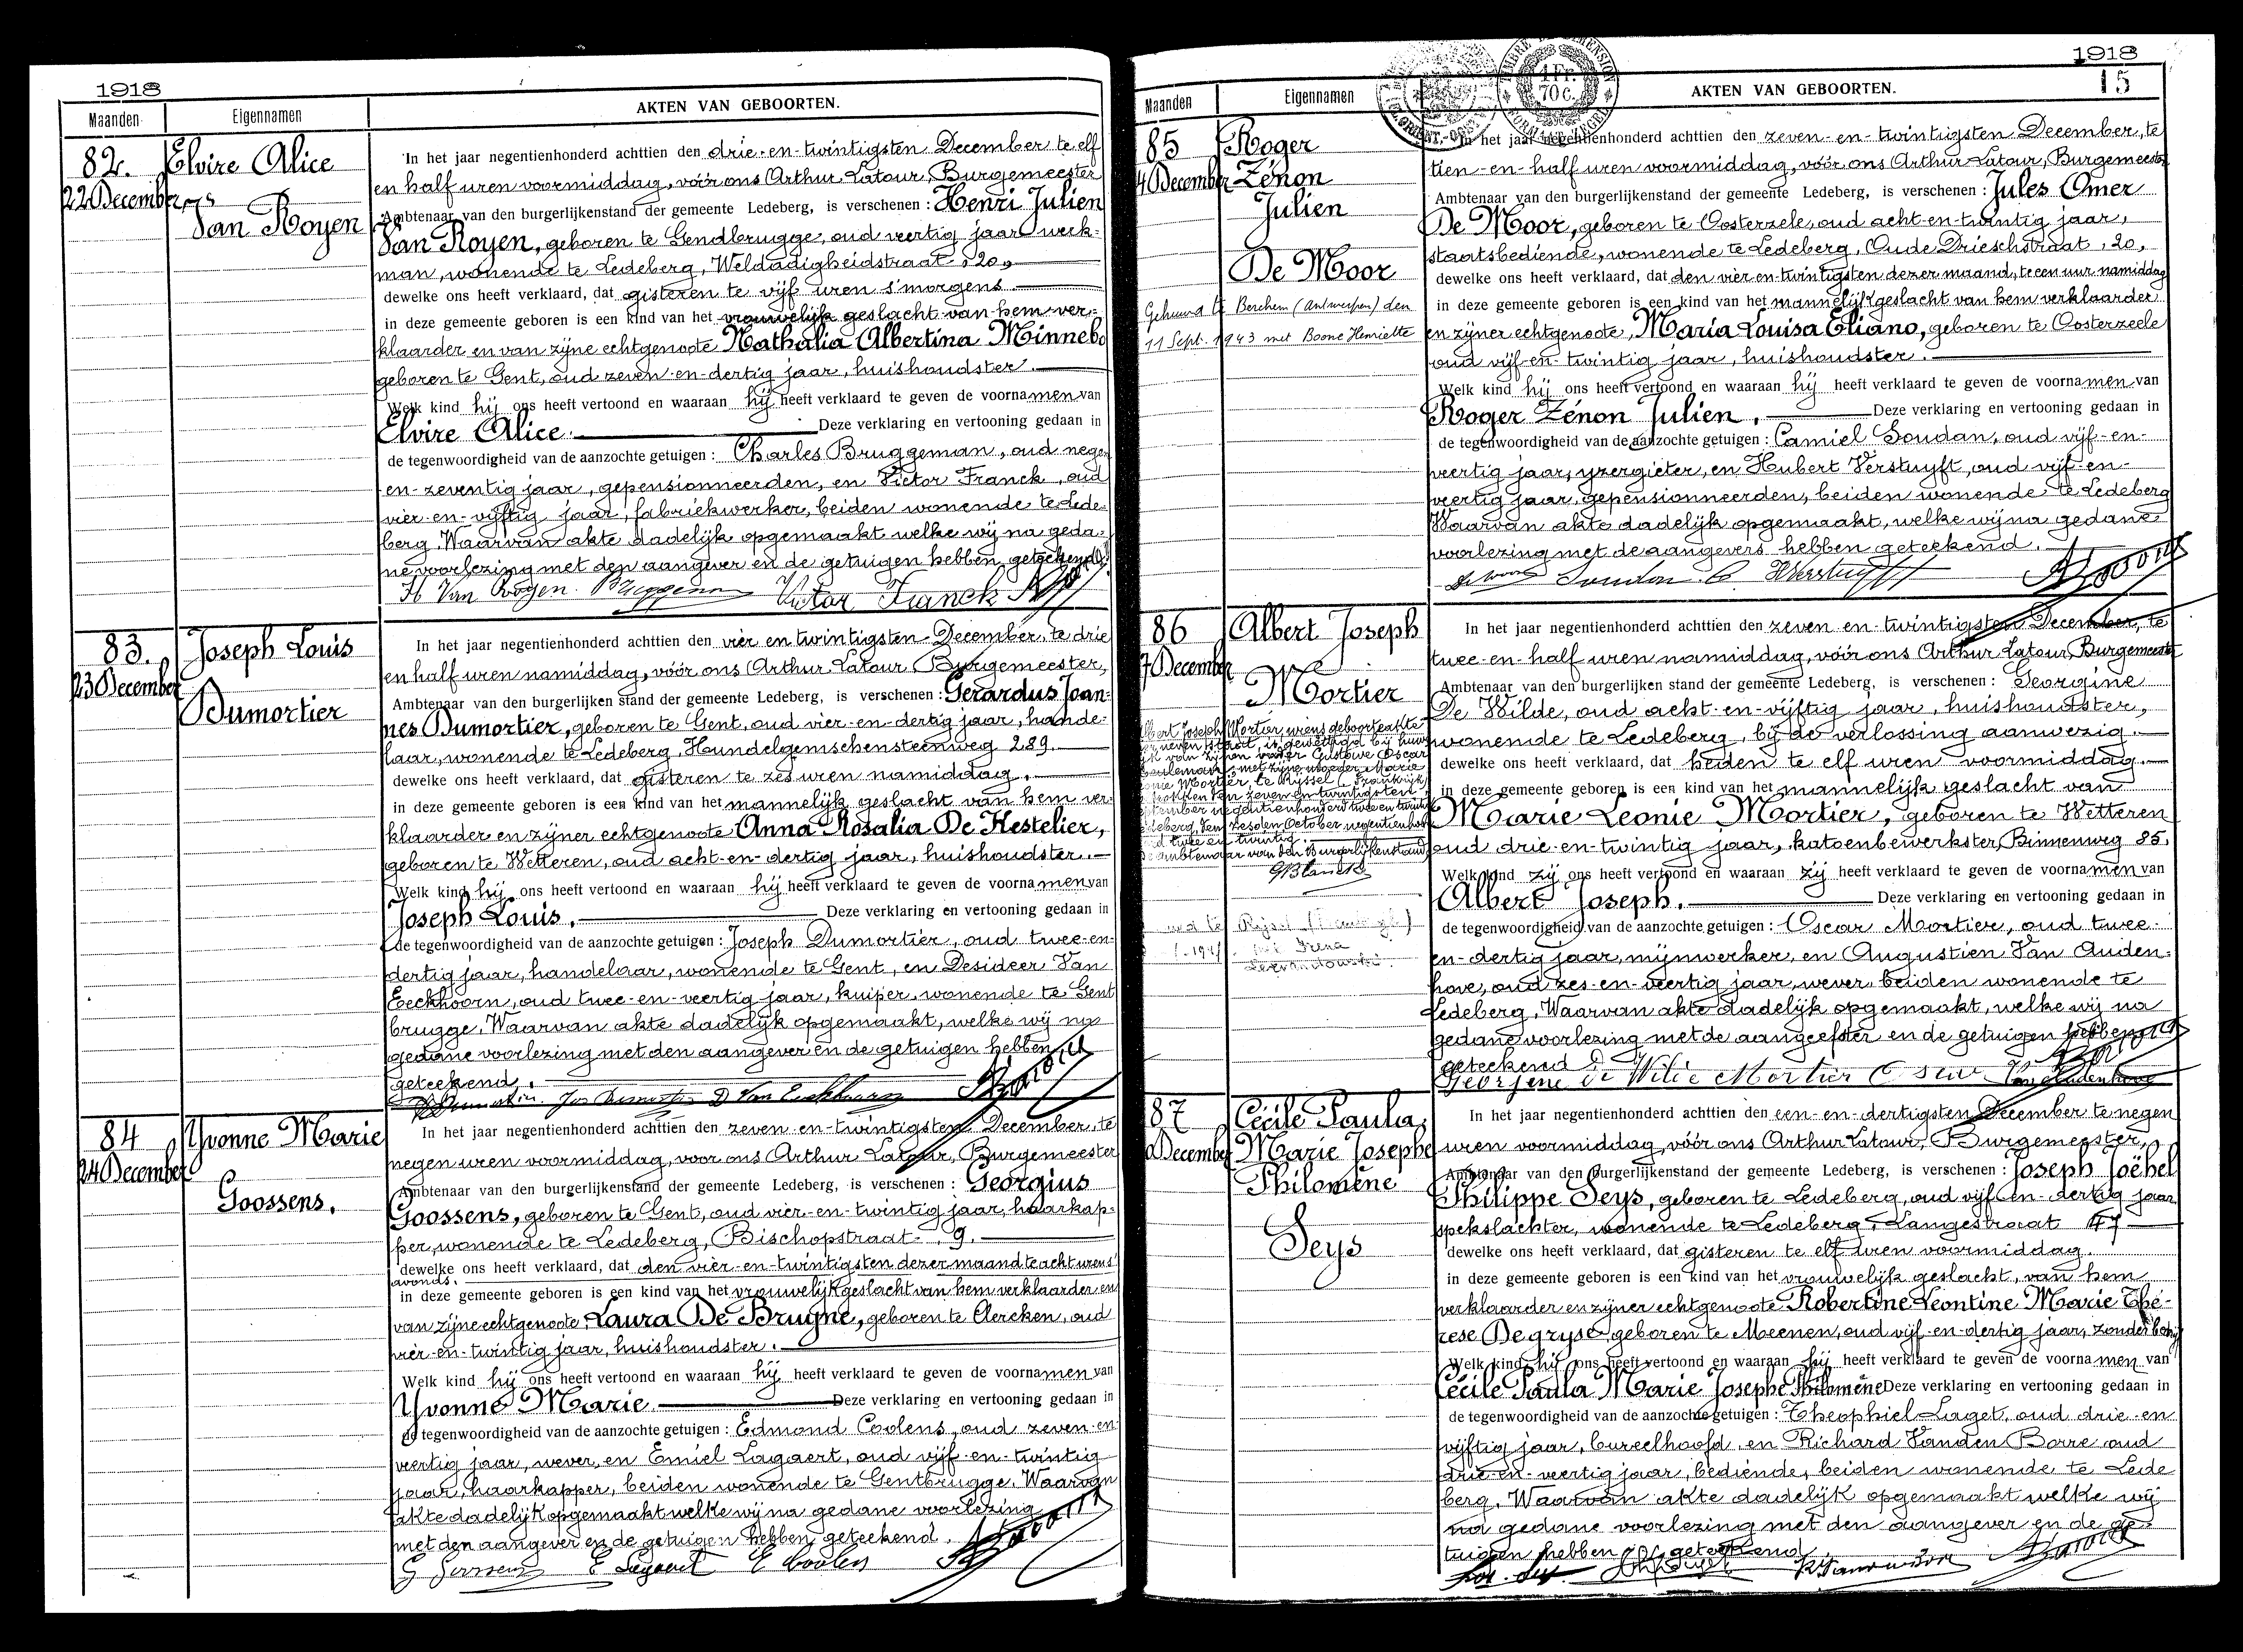 1918
Maanden
Eigennamen
AKTEN VAN GEBOORTEN.
82.
22 December
Elvire Alice
Van Royen
In het jaar negentienhonderd achttien den drie-en-twintigsten December te elf
en half uren voormiddag, vóór ons Arthur Latour, Burgemeester
Ambtenaar van den burgerlijkenstand der gemeente Ledeberg, is verschenen: Henri Julien
Van Royen, geboren te Gendbrugge, oud veertig jaar werk-
man, wonende te Ledeberg, Weldadigheidstraat, 20,
dewelke ons heeft verklaard, dat gisteren te vijf uren s'morgens
in deze gemeente geboren is een kind van het vrouwelijk geslacht van hem ver-
klaarder en van zijne echtgenoote Nathalia Albertina Minnebo
geboren te Gent, oud zeven-en-dertig jaar, huishoudster.
Welk kind hij ons heeft vertoond en waaraan hij heeft verklaard te geven de voornamen van
Elvire Alice. Deze verklaring en vertooning gedaan in
de tegenwoordigheid van de aanzochte getuigen: Charles Bruggeman, oud negen
en-zeventig jaar, gepensionneerden, en Victor Franck, oud
vier-en-vijftig jaar, fabriekwerker, beiden wonende te Lede-
berg. Waarvan akte dadelijk opgemaakt welke wij na geda-
ne voorlezing met den aangever en de getuigen hebben geteekend.
H Van Royen. Bruggeman Victor Franck
83.
23 December
Joseph Louis
Dumortier
In het jaar negentienhonderd achttien den vier en twintigsten December, te drie
en half uren namiddag, vóór ons Arthur Latour Burgemeester,
Ambtenaar van den burgerlijken stand der gemeente Ledeberg, is verschenen: Gerardus Joan-
nes Dumortier, geboren te Gent, oud vier-en-dertig jaar, hande-
laar, wonende te Ledeberg, Hundelgemschensteenweg 289.
dewelke ons heeft verklaard, dat gisteren te zes uren namiddag.
in deze gemeente geboren is een kind van het mannelijk geslacht van hem ver-
klaarder en zijner echtgenoote Anna Rosalia De Hestelier,
geboren te Wetteren, oud acht-en-dertig jaar, huishoudster.
Welk kind hij ons heeft vertoond en waaraan hij heeft verklaard te geven de voornamen van
Joseph Louis. Deze verklaring en vertooning gedaan in
de tegenwoordigheid van de aanzochte getuigen: Joseph Dumortier, oud twee-en-
dertig jaar, handelaar, wonende te Gent, en Desideer Van
Eeckhoorn, oud twee-en-veertig jaar, kuiper, wonende te Gent
brugge. Waarvan akte dadelijk opgemaakt, welke wij na
gedane voorlezing met den aangever en de getuigen hebben
geteekend.
84
24 December
Yvonne Marie
Goossens.
In het jaar negentienhonderd achttien den zeven-en-twintigsten December, te
negen uren voormiddag, voor ons Arthur Latour, Burgemeester
Ambtenaar van den burgerlijkenstand der gemeente Ledeberg, is verschenen: Georgius
Goossens, geboren te Gent, oud vier-en-twintig jaar, haarkap-
per, wonende te Ledeberg, Bischopstraat, 9.
dewelke ons heeft verklaard, dat den vier-en-twintigsten dezer maand te acht urens'
avonds.
in deze gemeente geboren is een kind van het vrouwelijk geslacht van hem verklaarder en
van zijne echtgenoote Laura De Bruyne, geboren te Clercken, oud
vier-en-twintig jaar, huishoudster.
Welk kind hij ons heeft vertoond en waaraan hij heeft verklaard te geven de voornamen van
Yvonne Marie. Deze verklaring en vertooning gedaan in
de tegenwoordigheid van de aanzochte getuigen: Edmond Coolens, oud zeven-en
veertig jaar, wever, en Emiel Lagaert, oud vijf-en-twintig
jaar, haarkapper, beiden wonende te Gentbrugge. Waarvan
akte dadelijk opgemaakt welke wij na gedane voorlezing
met den aangever en de getuigen hebben geteekend.
1918
15
Maanden
Eigennamen
AKTEN VAN GEBOORTEN.
1 Fr.
70c.
85
4 December
Roger
Zénon
Julien
De Moor
Gehuwd te Berchem (Antwerpen) den
11 Sept. 1943 met Boone Henriette
In het jaar negentienhonderd achttien den zeven-en-twintigsten December, te
tien-en-half uren voormiddag, vóór ons Arthur Latour, Burgemeester
Ambtenaar van den burgerlijkenstand der gemeente Ledeberg, is verschenen: Jules Omer
De Moor, geboren te Oosterzele, oud acht-en-twintig jaar,
staatsbediende, wonende te Ledeberg, Oude Drieschstraat, 20,
dewelke ons heeft verklaard, dat den vier-en-twintigsten dezer maand, te een uur namiddag
in deze gemeente geboren is een kind van het mannelijk geslacht van hem verklaarder
en zijner echtgenoote, Maria Louisa Eliano, geboren te Oosterzeele
oud vijf-en-twintig jaar, huishoudster.
Welk kind hij ons heeft vertoond en waaraan hij heeft verklaard te geven de voornamen van
Roger Zénon Julien. Deze verklaring en vertooning gedaan in
de tegenwoordigheid van de aanzochte getuigen: Camiel Soudan, oud vijf-en-
veertig jaar, yzergieter, en Hubert Verstuyft, oud vijf-en-
veertig jaar, gepensionneerden, beiden wonende te Ledeberg
Waarvan akte dadelijk opgemaakt, welke wij na gedane
voorlezing met de aangevers hebben geteekend.
86
7 December
Albert Joseph
Mortier
In het jaar negentienhonderd achttien den zeven-en-twintigsten December, te
twee-en-half uren namiddag, vóór ons Arthur Latour, Burgemeester
Ambtenaar van den burgerlijken stand der gemeente Ledeberg, is verschenen: Georgine
De Wilde, oud acht-en-vijftig jaar, huishoudster,
wonende te Ledeberg, bij de verlossing aanwezig.
dewelke ons heeft verklaard, dat heden te elf uren voormiddag.
in deze gemeente geboren is een kind van het mannelijk geslacht van
Marie Leonie Mortier, geboren te Wetteren
oud drie-en-twintig jaar, katoenbewerkster, Binnenweg 85.
Welk kind zij ons heeft vertoond en waaraan zij heeft verklaard te geven de voornamen van
Albert Joseph. Deze verklaring en vertooning gedaan in
de tegenwoordigheid van de aanzochte getuigen: Oscar Mortier, oud twee-
en-dertig jaar, mijnwerker, en Augustien Van Auden-
hove, oud zes-en-veertig jaar, wever, beiden wonende te
Ledeberg. Waarvan akte dadelijk opgemaakt, welke wij na
gedane voorlezing met de aangeefster en de getuigen hebben
geteekend
87
December
Cécile Paula,
Marie Josephe
Philomène
Seys
In het jaar negentienhonderd achttien den een-en-dertigsten December te negen
uren voormiddag, vóór ons Arthur Latour, Burgemeester,
Ambtenaar van den Burgerlijkenstand der gemeente Ledeberg, is verschenen: Joseph Joëhel
Philippe Seys, geboren te Ledeberg, oud vijf-en-dertig jaar
spekslachter, wonende te Ledeberg, Langestraat 47
dewelke ons heeft verklaard, dat gisteren te elf uren voormiddag.
in deze gemeente geboren is een kind van het vrouwelijk geslacht, van hem
verklaarder en zijner echtgenoote Robertine Leontine Marie Thé-
rese Degryse geboren te Meenen, oud vijf-en-dertig jaar, zonder bedrijf
Welk kind hij ons heeft vertoond en waaraan hij heeft verklaard te geven de voornamen van
Cécile Paula Marie Josephe Philomène Deze verklaring en vertooning gedaan in
de tegenwoordigheid van de aanzochte getuigen: Theophiel Laget, oud drie-en
vijftig jaar, bureelhoofd, en Richard Vanden Borre oud
drie-en-veertig jaar, bediende, beiden wonende te Lede
berg. Waarvan akte dadelijk opgemaakt welke wij
na gedane voorlezing met den aangever en de ge-
tuigen hebben geteekend